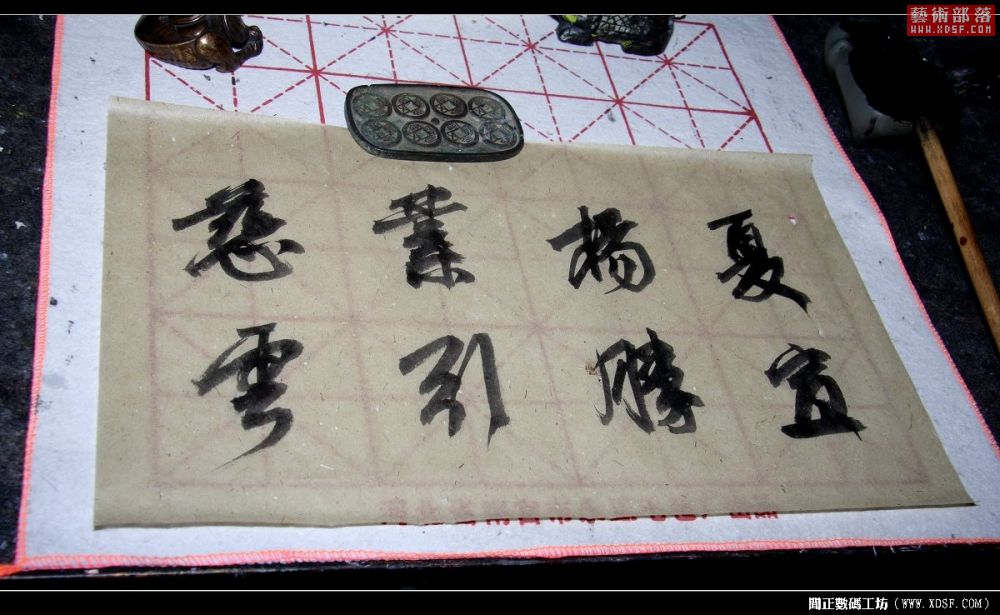 藝術部落
WWW.XDSF.COM
夏宣
揚勝
業引
慈雲
閒正數碼工坊（WWW.XDSF.COM）